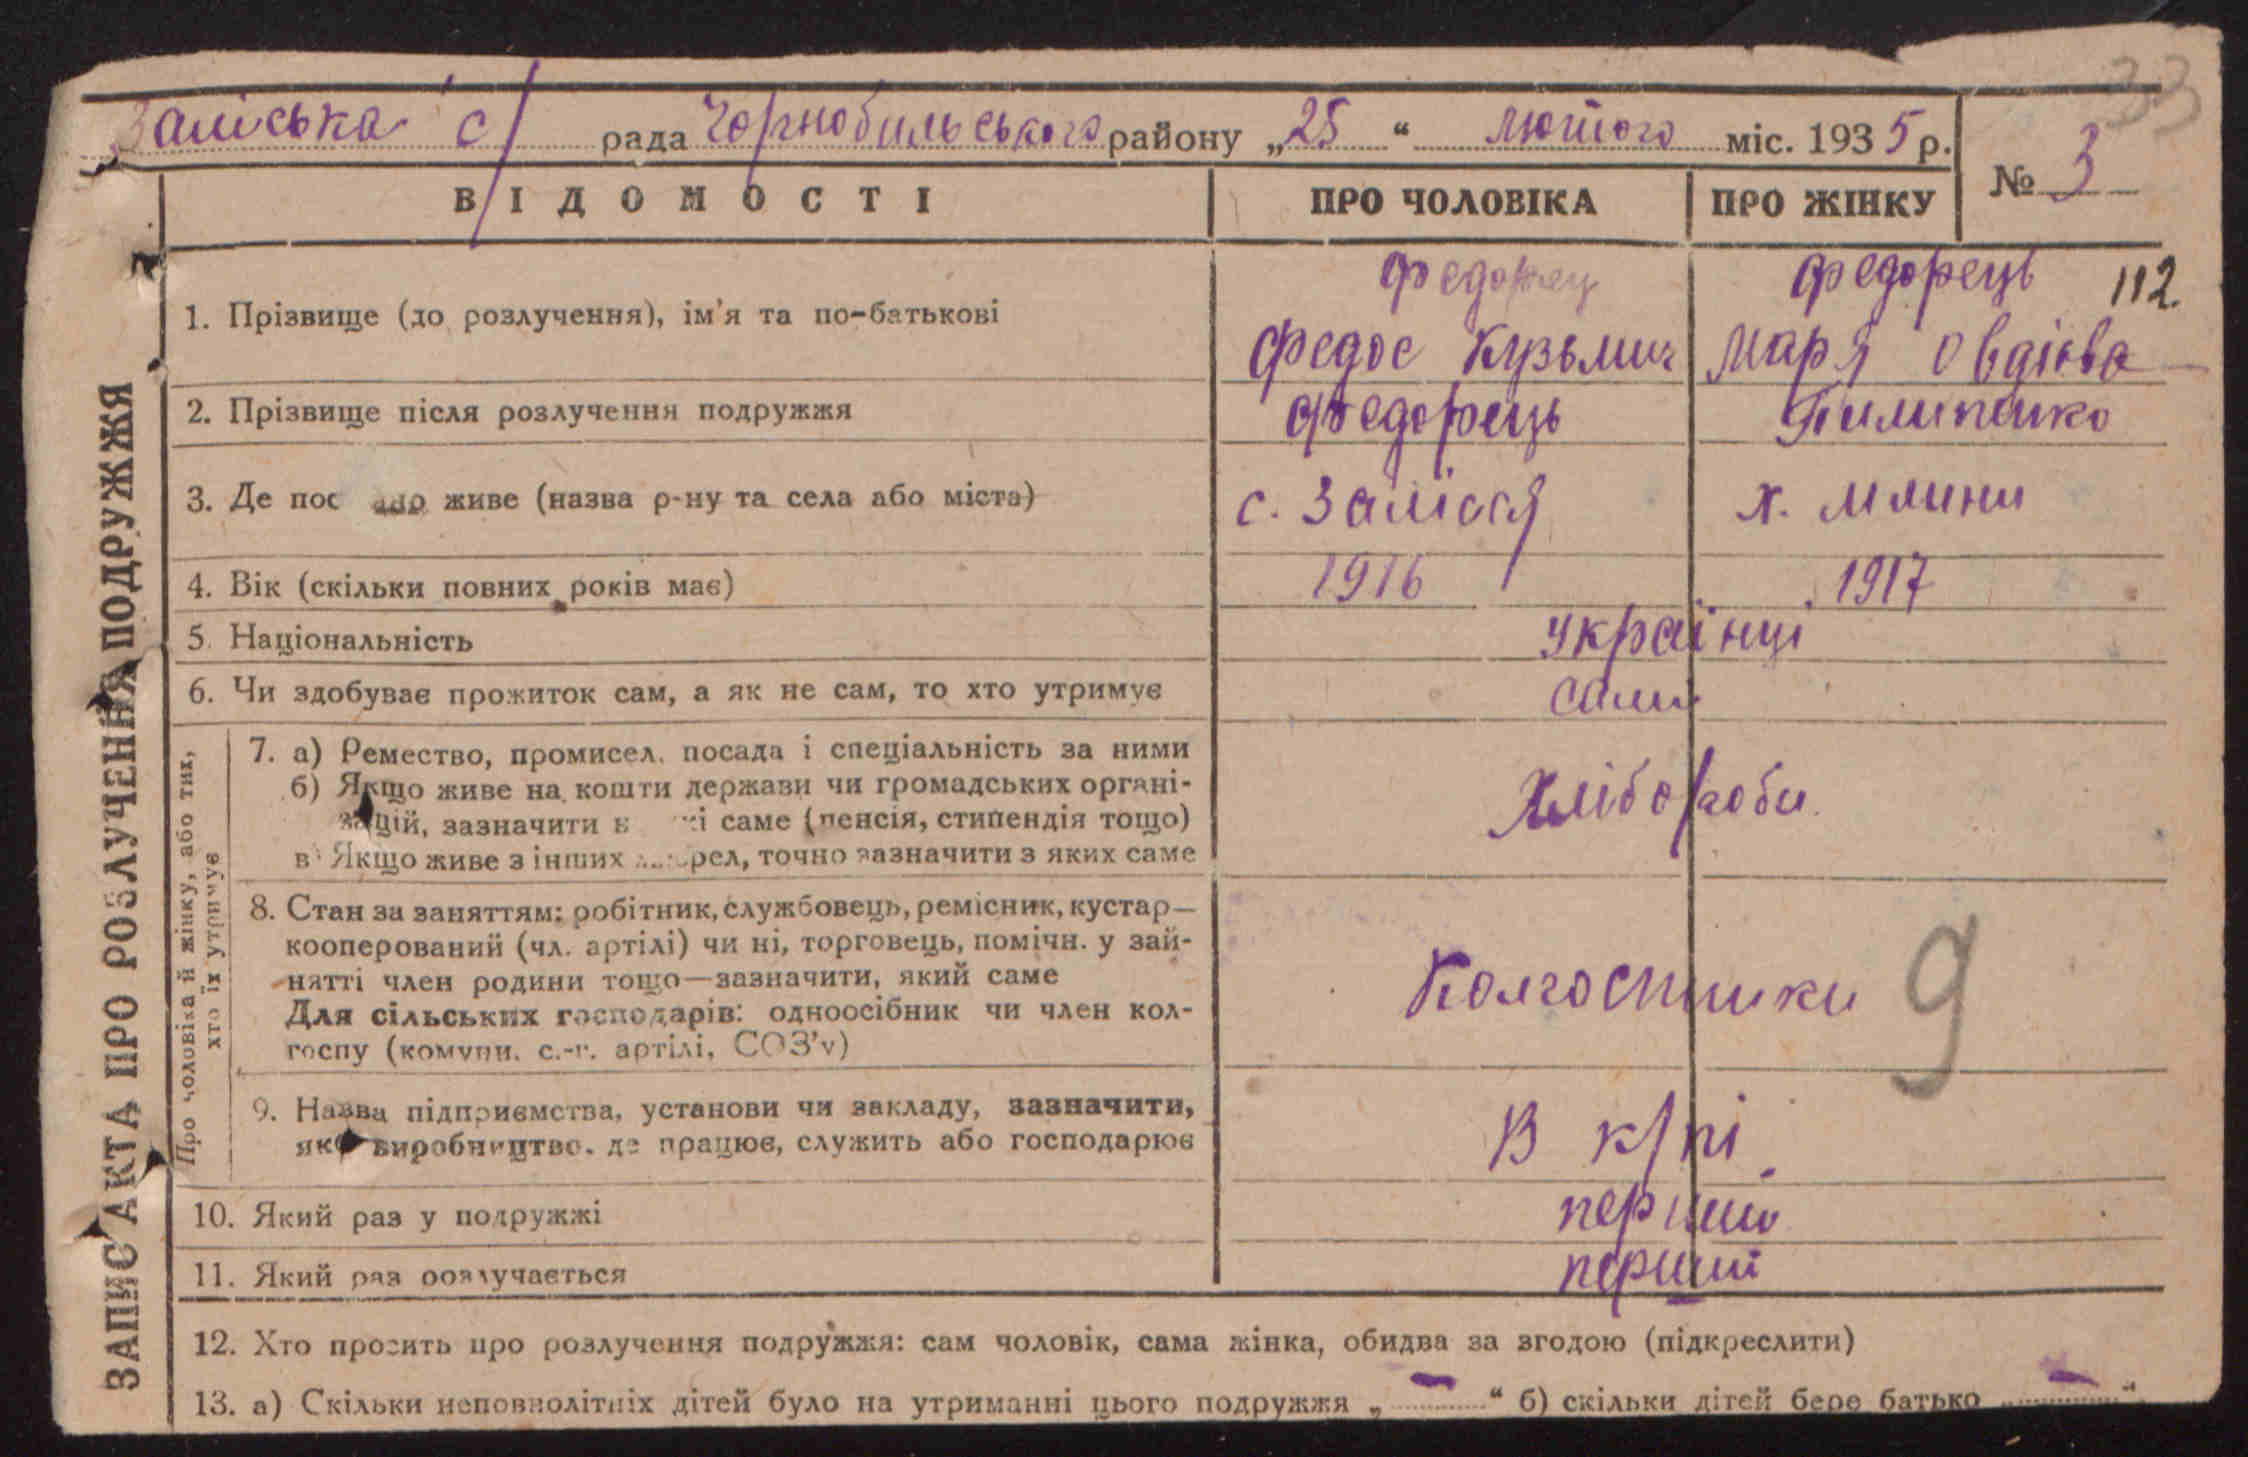 33
Заліська с/ рада Чорнобильського району „25“ лютого міс. 1935 р.
№ 3
ВІДОМОСТІ ПРО ЧОЛОВІКА ПРО ЖІНКУ
ЗАПИС АКТА ПРО РОЗЛУЧЕННЯ ПОДРУЖЖЯ
112.
1. Прізвище (до розлучення), ім'я та по-батькові
Федорец
Федос Кузьмич
Федорець
Мар'я Овдієва
2. Прізвище після розлучення подружжя Федорець Пилипенко
3. Де пос живе (назва р-ну та села або міста) с. Залісся х. Млини
4. Вік (скільки повних років має) 1916 1917
5. Національність Українці
6. Чи здобуває прожиток сам, а як не сам, то хто утримує сами
Про чоловіка й жінку, або тих,
хто їх утримує
7. а) Ремество, промисел, посада і спеціальність за ними
б) Якщо живе на кошти держави чи громадських органі-
зацій, зазначити саме (пенсія, стипендія тощо)
в) Якщо живе з інших джерел, точно зазначити з яких саме
Хлібороби
8. Стан за заняттям: робітник, службовець, ремісник, кустар—
кооперований (чл. артілі) чи ні, торговець, помічн. у зай-
нятті член родини тощо—зазначити, який саме
Для сільських господарів: одноосібник чи член кол-
госпу (комуни, с.-г. артілі, СОЗ'у)
Колгоспники
9
9. Назва підприємства, установи чи закладу, зазначити,
яке виробництво, де працює, служить або господарює
В к/пі
10. Який раз у подружжі перший
11. Який раз розлучається перший
12. Хто просить про розлучення подружжя: сам чоловік, сама жінка, обидва за згодою (підкреслити)
13. а) Скільки неповнолітніх дітей було на утриманні цього подружжя „ — “ б) скільки дітей бере батько „ — “